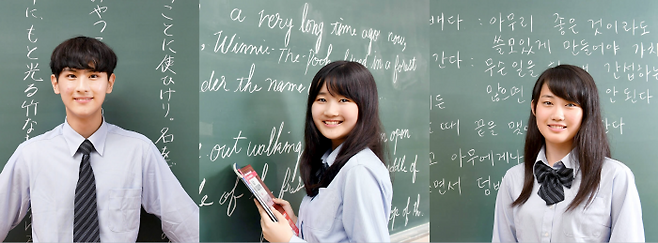 ことに使ひけり。名を
に、もと光る竹な
a very long time ago now,
Winnie-The-Pooh lived in a forest
der the name
out walking in open
middle of
of the
top of
배다 : 아무리 좋은 것이라도
쓸모있게 만들어야 가치
간다 : 무슨일을 간섭하는
않으며 안 된다
든
때 끝을 맺
고 아무에게나
면서 덤벼